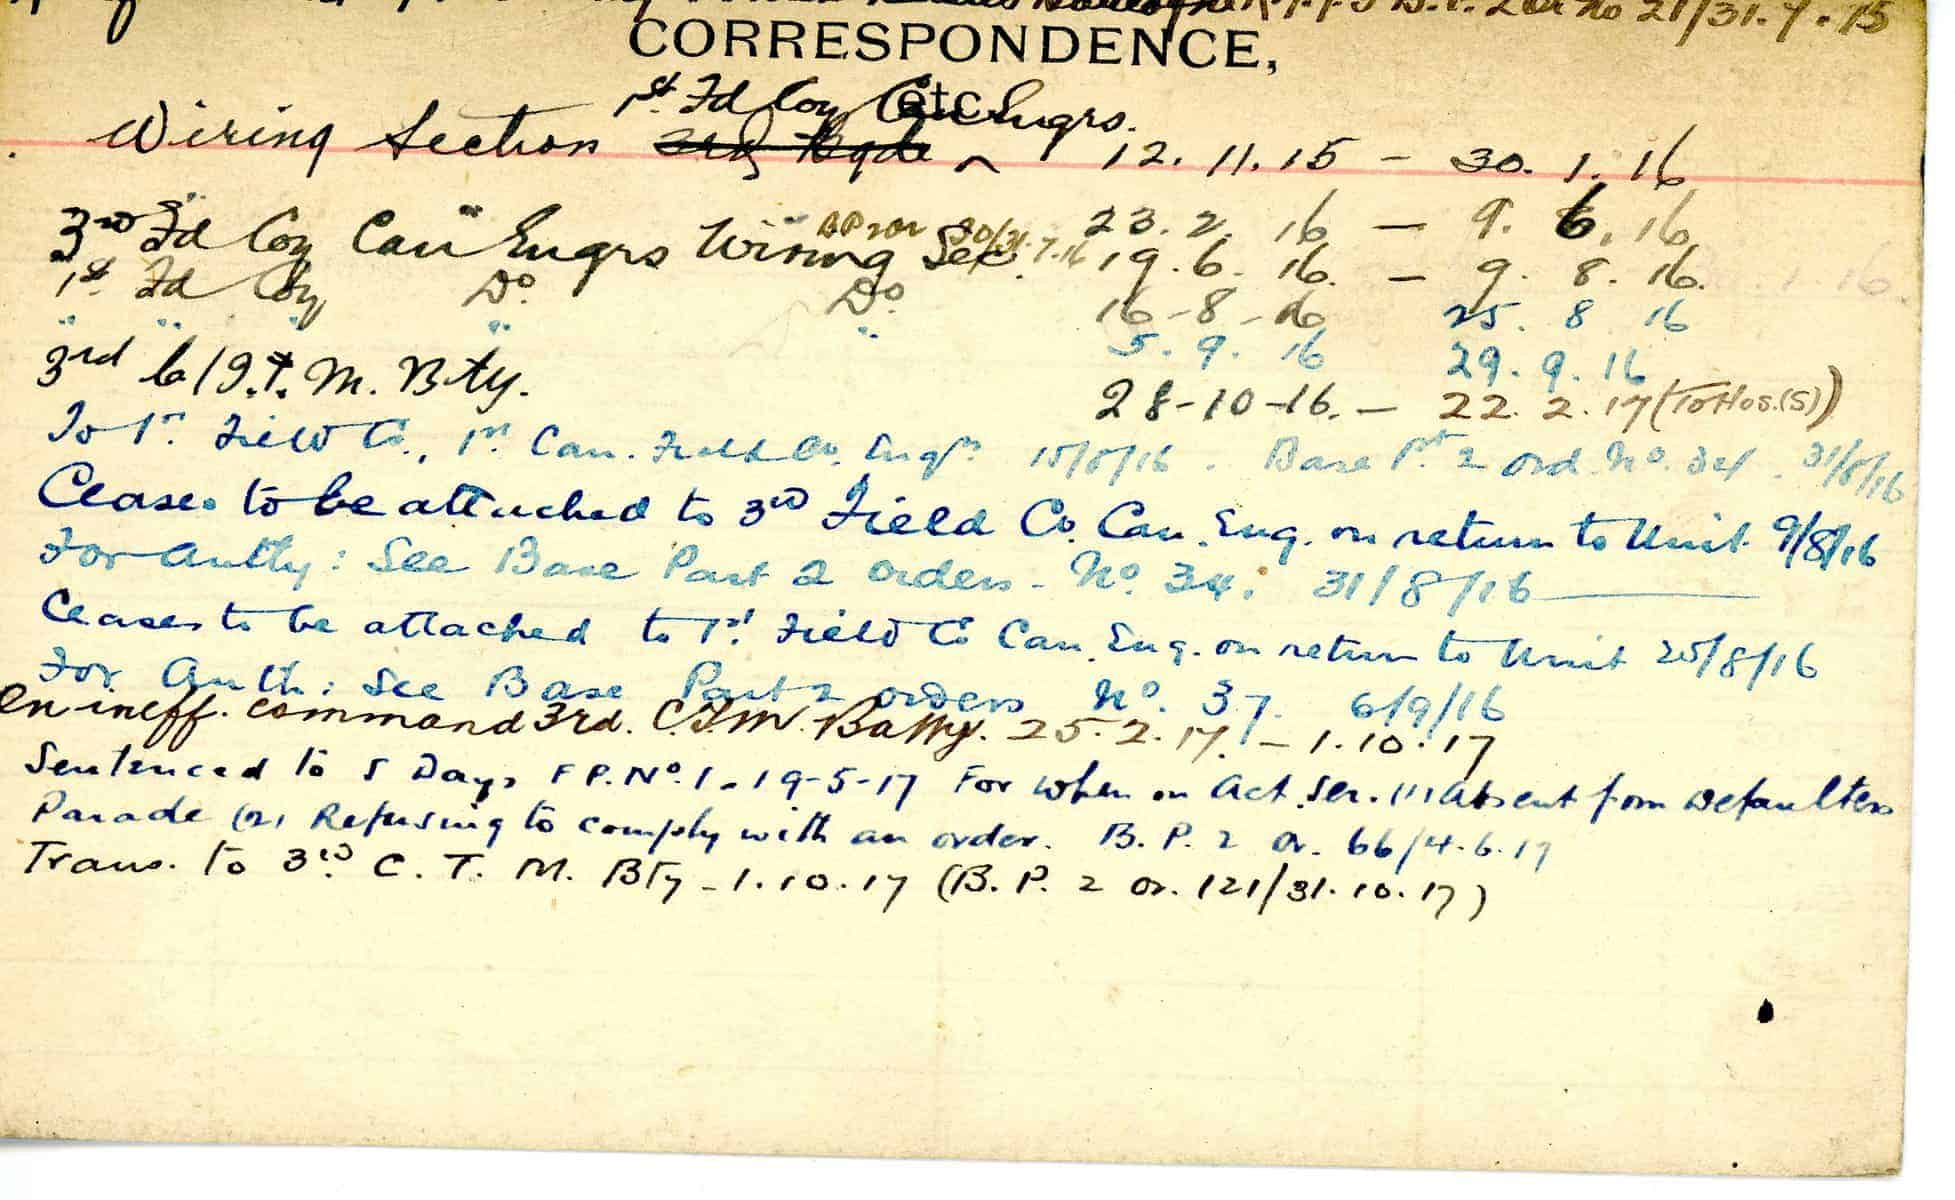 Or no 21/31.7.15
CORRESPONDENCE,
etc
1st Fd Coy Can Engrs.
Wiring Section 3rd Bgde ^ 12.11.15 - 30.1.16
3rd Fd Coy Can Engrs Wiring Sec. 23.2.16 - 9.6.16
BP2Or 30/31.7.16 19.6.16. - 9.8.16.
1st Fd Coy Do Do 16-8-16 25.8 16
" " " " " 5.9.16 29.9.16
3rd L/T.M. Bty. 28-10-16. - 22.2.17 (To Hos.(S))
To 1st Field Co., 1st Can. Field Co. Engrs 15/8/16. Base Pt 2 Ord. No. 34. 31/8/16
Ceases to be attached to 3rd Field Co. Can. Eng. on return to Unit 9/8/16
For Authy: See Base Part 2 orders - No. 34: 31/8/16
Ceases to be attached to 1st Field Co Can. Eng. on return to Unit 25/8/16
For Auth: See Base Part 2 orders No. 37. 6/9/16
On ineff. command 3rd. C.T.M. Batty. 25.2.17. - 1.10.17
Sentenced to 5 Days F.P. No. 1. 19-5-17 For when on Act. Ser. (1) Absent from Defaulters
Parade (2) Refusing to comply with an order. B.P. 2 Or. 66/4.6.17
Trans. to 3rd C.T.M. Bty - 1.10.17 (B.P. 2 or. 121/31.10.17)